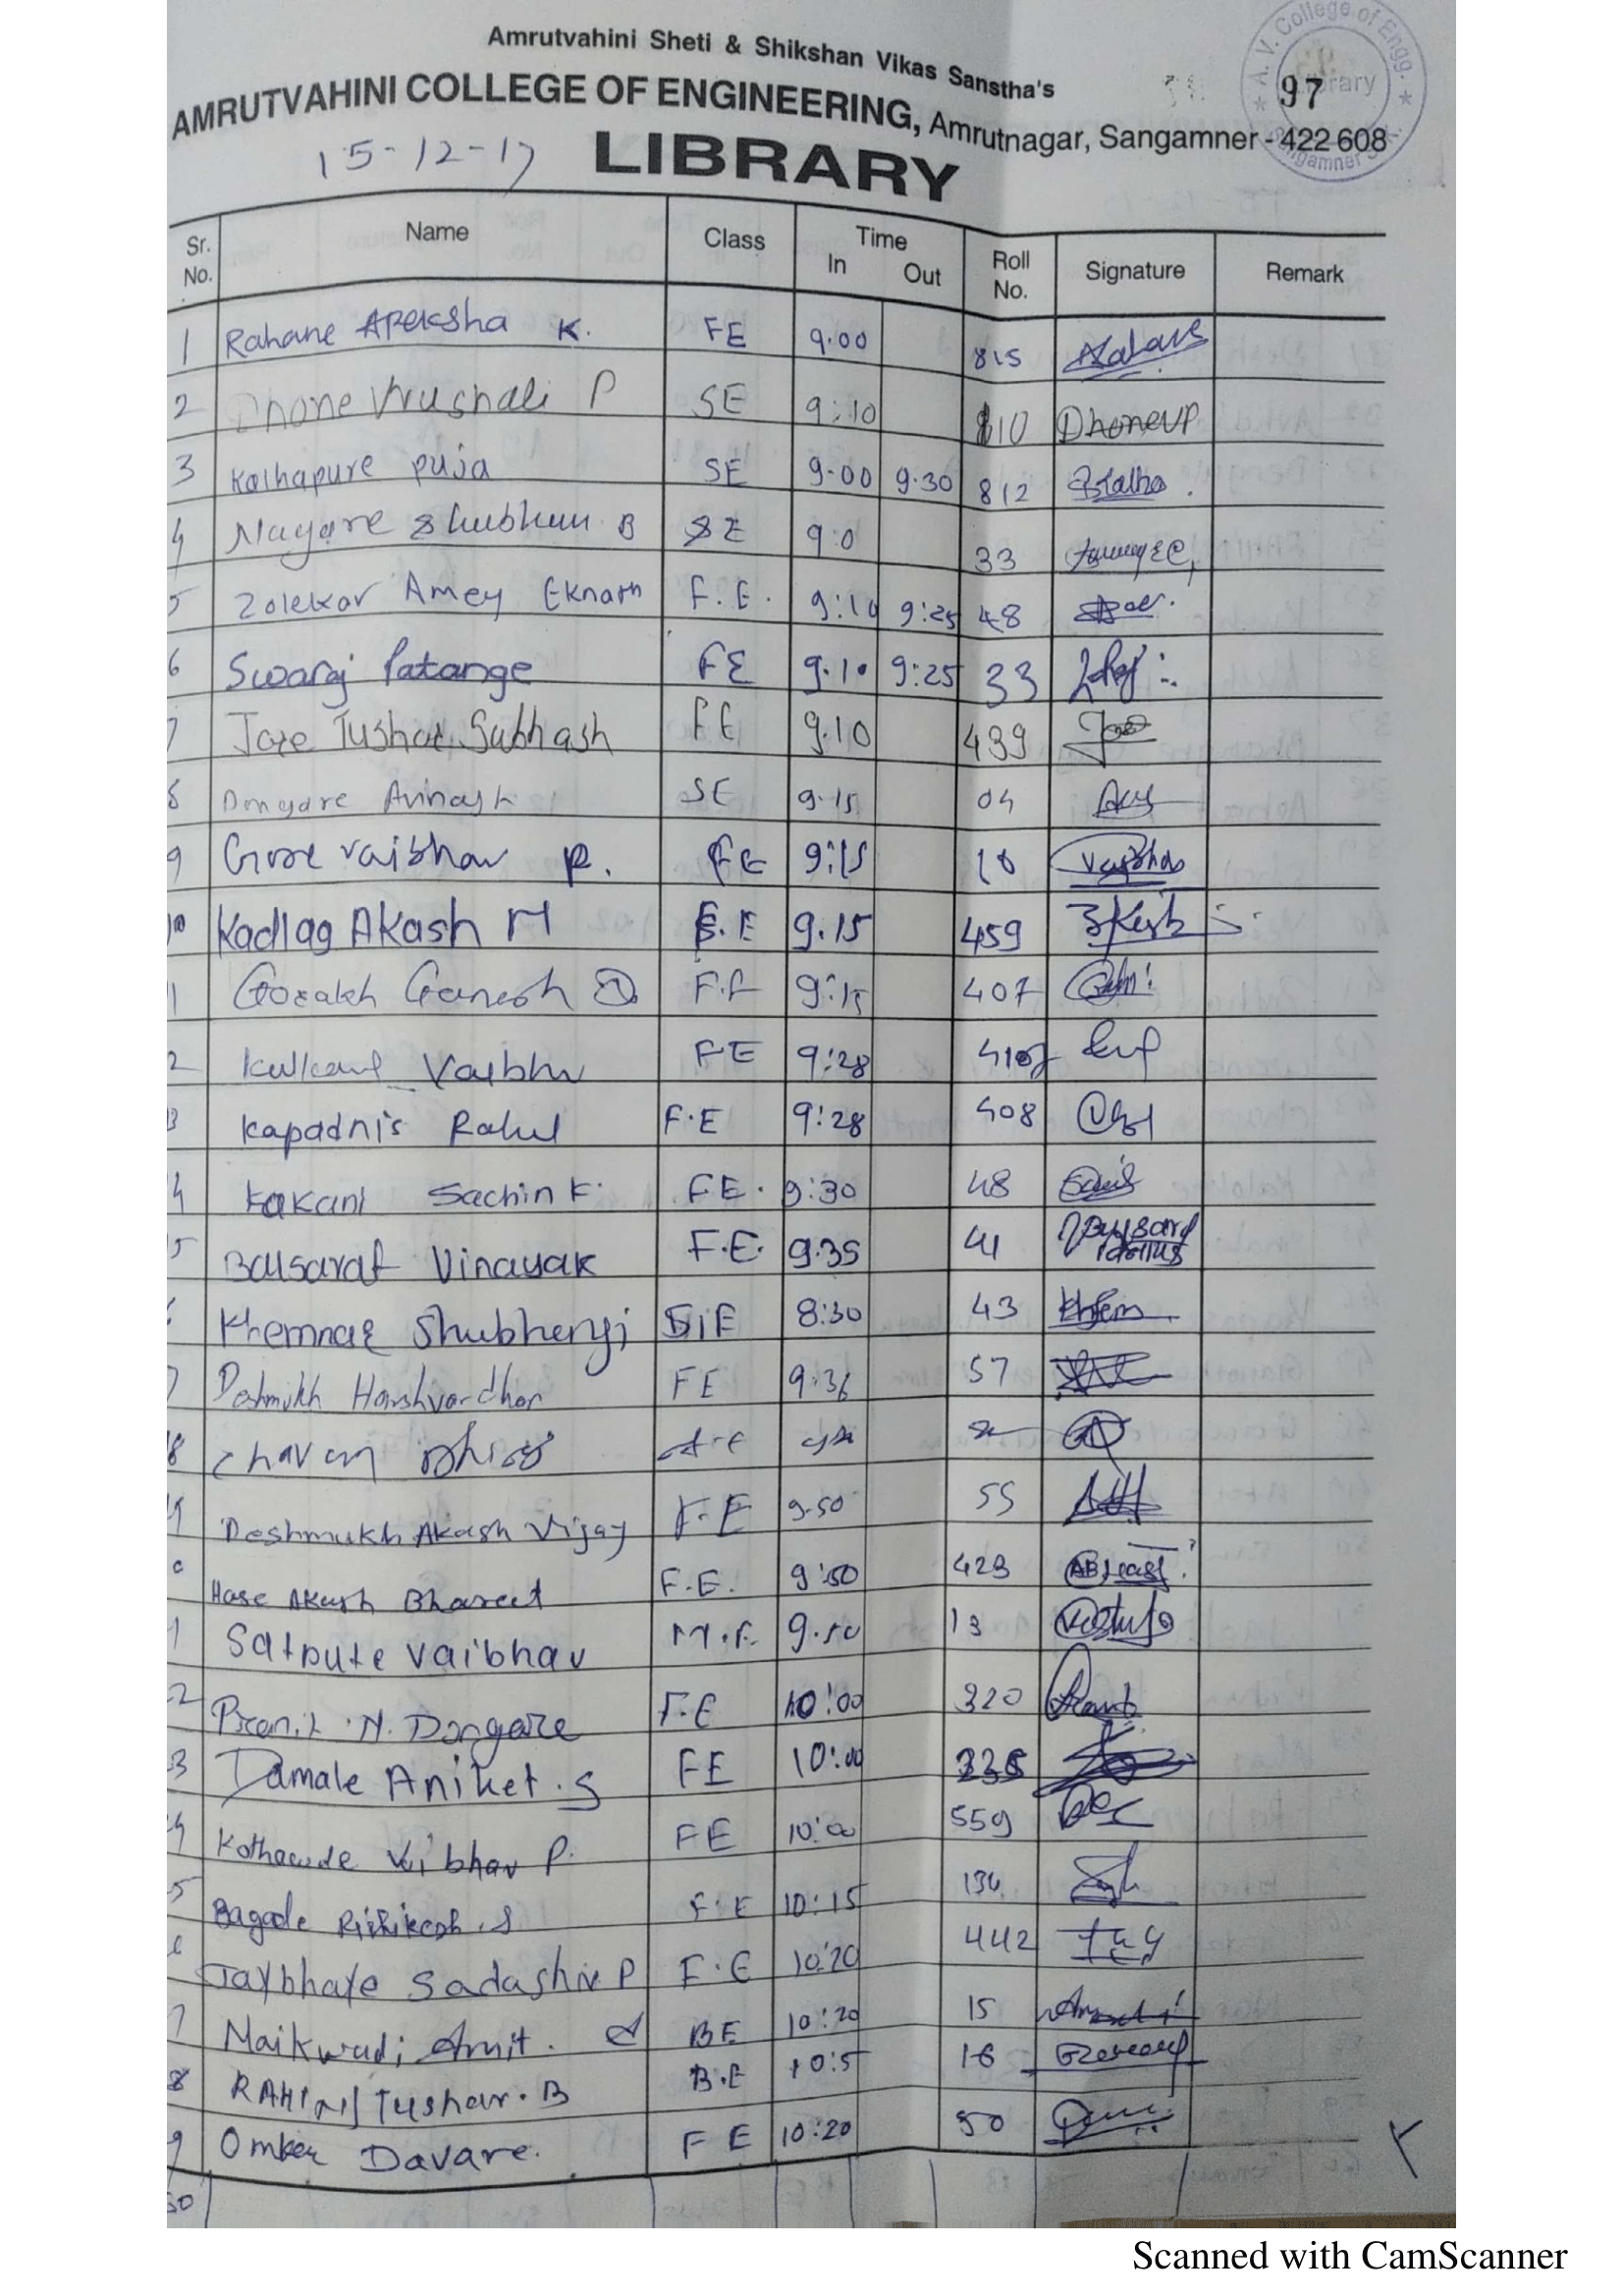 Amrutvahini Sheti & Shikshan Vikas Sanstha's
AMRUTVAHINI COLLEGE OF ENGINEERING, Amrutnagar, Sangamner - 422 608
A. V. College of Engg. Library Sangamner 97
15-12-17 LIBRARY
Sr. No. Name Class Time In Out Roll No. Signature Remark
1 Rahane Apeksha K. FE 9.00 815
2 Dhone Vrushali P SE 9:10 810 DhoneVP
3 Kolhapure puja SE 9.00 9.30 812
4 Nagare Shubham B SE 9:0 33
5 Zolekar Amey Eknath F.E. 9:10 9:25 48
6 Swaraj Patange FE 9.10 9:25 33
7 Jore Tushar Subhash FE 9.10 439
8 Dongare Avinash SE 9.15 04
9 Gore vaibhav P. FE 9:15 18
10 Kadlag Akash M F.E 9.15 459
1 Gorakh Ganesh D. F.E 9:15 407
2 Kulkarni Vaibhav FE 9:28
3 Kapadnis Rahul F.E 9:28 408
4 Kakani Sachin K. FE. 9:30 48
5 Balsaraf Vinayak F.E. 9.35 41
Khemnar Shubhangi S.E 8:30 43
7 Deshmukh Harshvardhan FE 9:36 57
8 Chavan
Deshmukh Akash Vijay F.E 9.50 55
Hase Akash Bharat F.E. 9:50 423
1 Satpute vaibhav M.E. 9.50 13
2 Pranit N. Dongare F.E 10:00 320
3 Damale Aniket .S FE 10:00
4 Kothawade Vaibhav P. FE 10:00 559
5 Bagade Rishikesh .S F.E 10:15 134
Jaybhaye Sadashiv P F.E 10:20 442
7 Naikwadi Amit. BE 10:20 15
8 RAHANE Tushar. B B.E 10:5 16
9 Omkar Davare. FE 10:20 50
30
Scanned with CamScanner